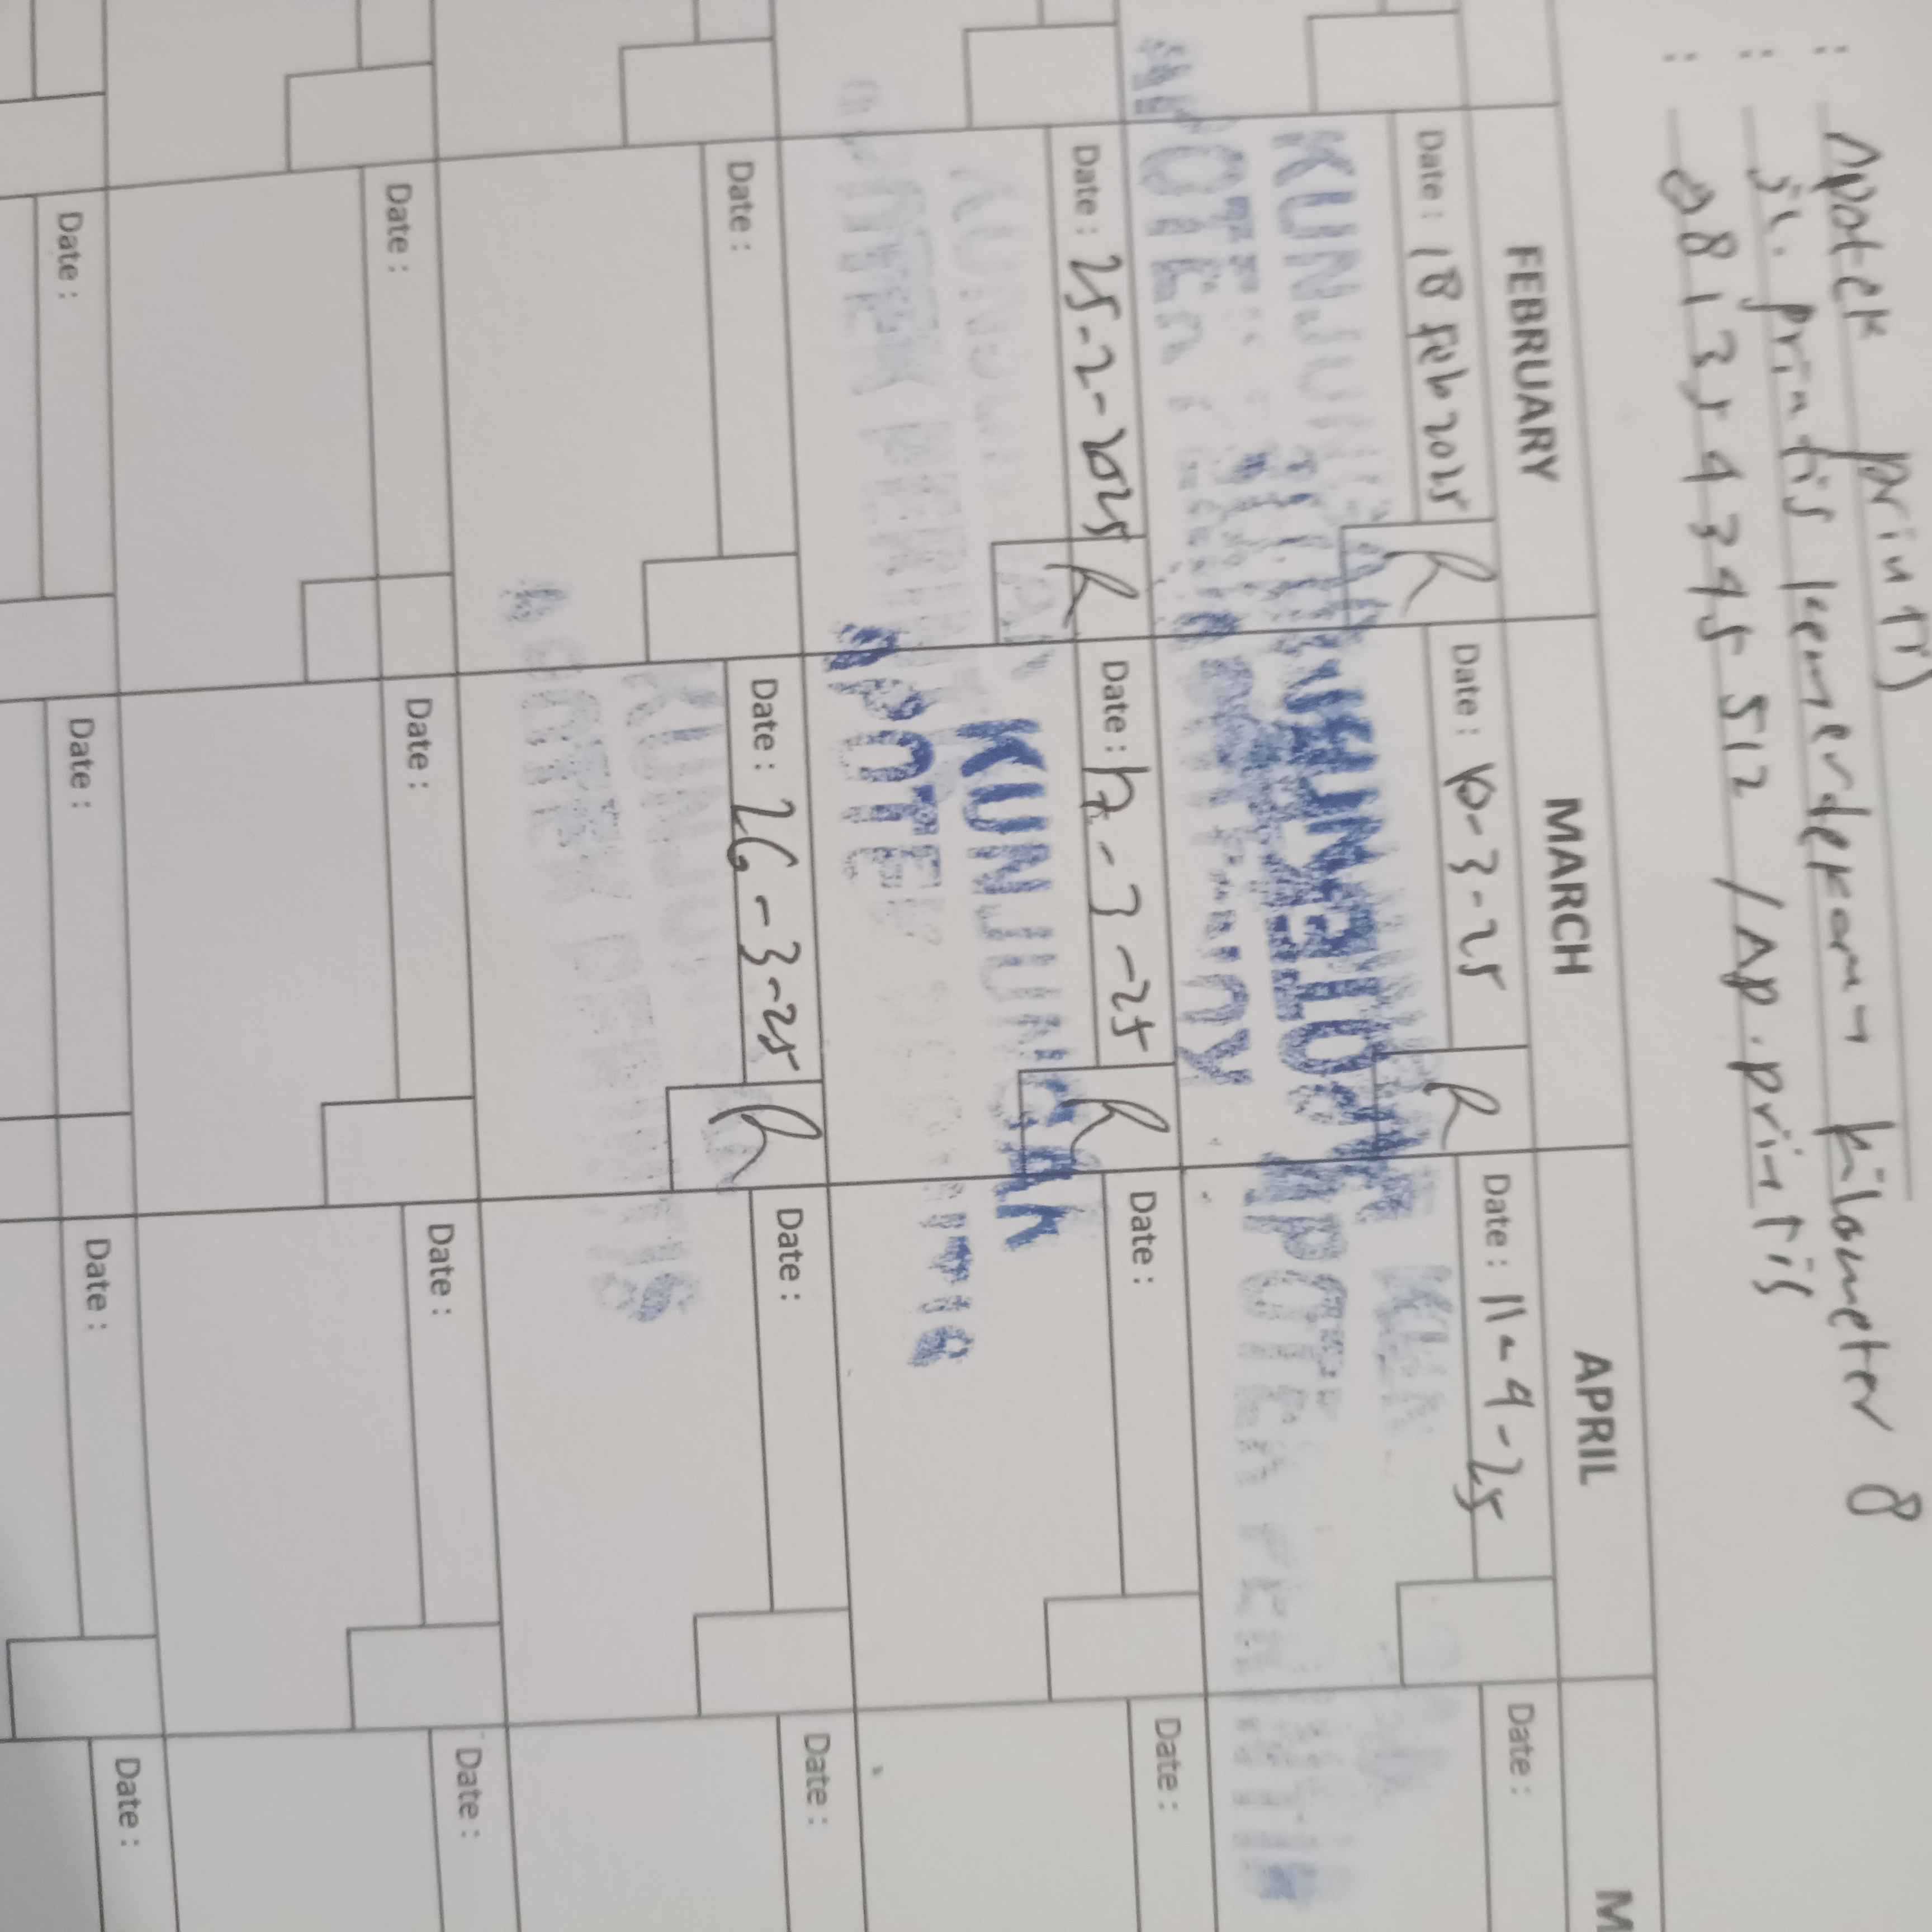 : Apotek printis
: Jl. printis kemerdekaan kilometer 8
: 081354345512 / Ap. printis
FEBRUARY MARCH APRIL M
Date : 18 Feb 2025 R Date : 10-3-25 R Date : 11-4-25 Date :
KUNJUNGAN
APOTEK
Date : 25-2-2025 R Date : 17-3-25 R Date : Date :
KUNJUNGAN
APOTEK PERINTIS
Date : Date : 26-3-25 R Date : Date :
KUNJUNGAN
APOTEK PERINTIS
Date : Date : Date : Date :
Date : Date : Date : Date :